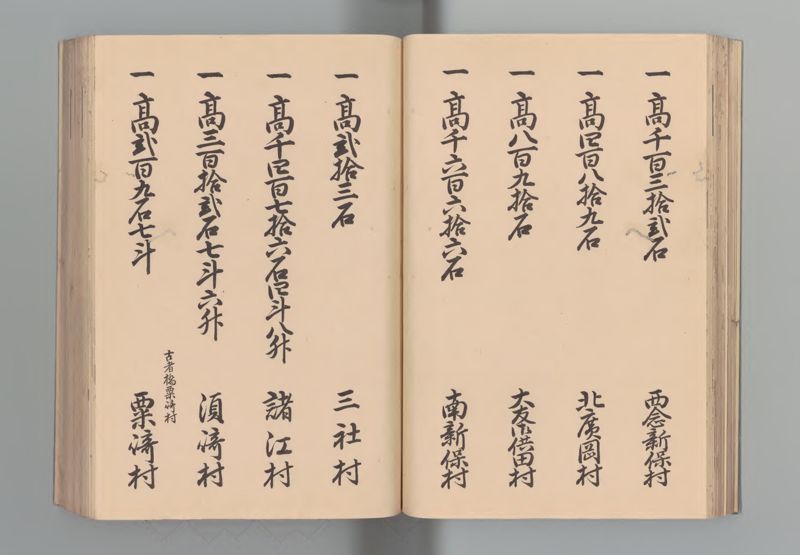 一高千百三拾弐石 西念新保村
一高四百八拾九石 北廣岡村
一高八百九拾石 大友御供田村
一高千六百六拾六石 南新保村
一高弐拾三石 三社村
一高千四百七拾六石四斗八升 諸江村
一高三百拾弐石七斗六升 須崎村
古者橋粟崎村
一高弐百九石七斗 粟崎村